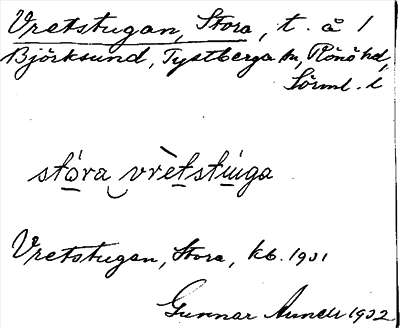 Vretstugan, Stora, t. å 1
Björksund, Tystberga sn, Rönö hd,
Sörml. l
stóra vrètstuga
Vretstugan, Stora, kb. 1901
Gunnar 1932